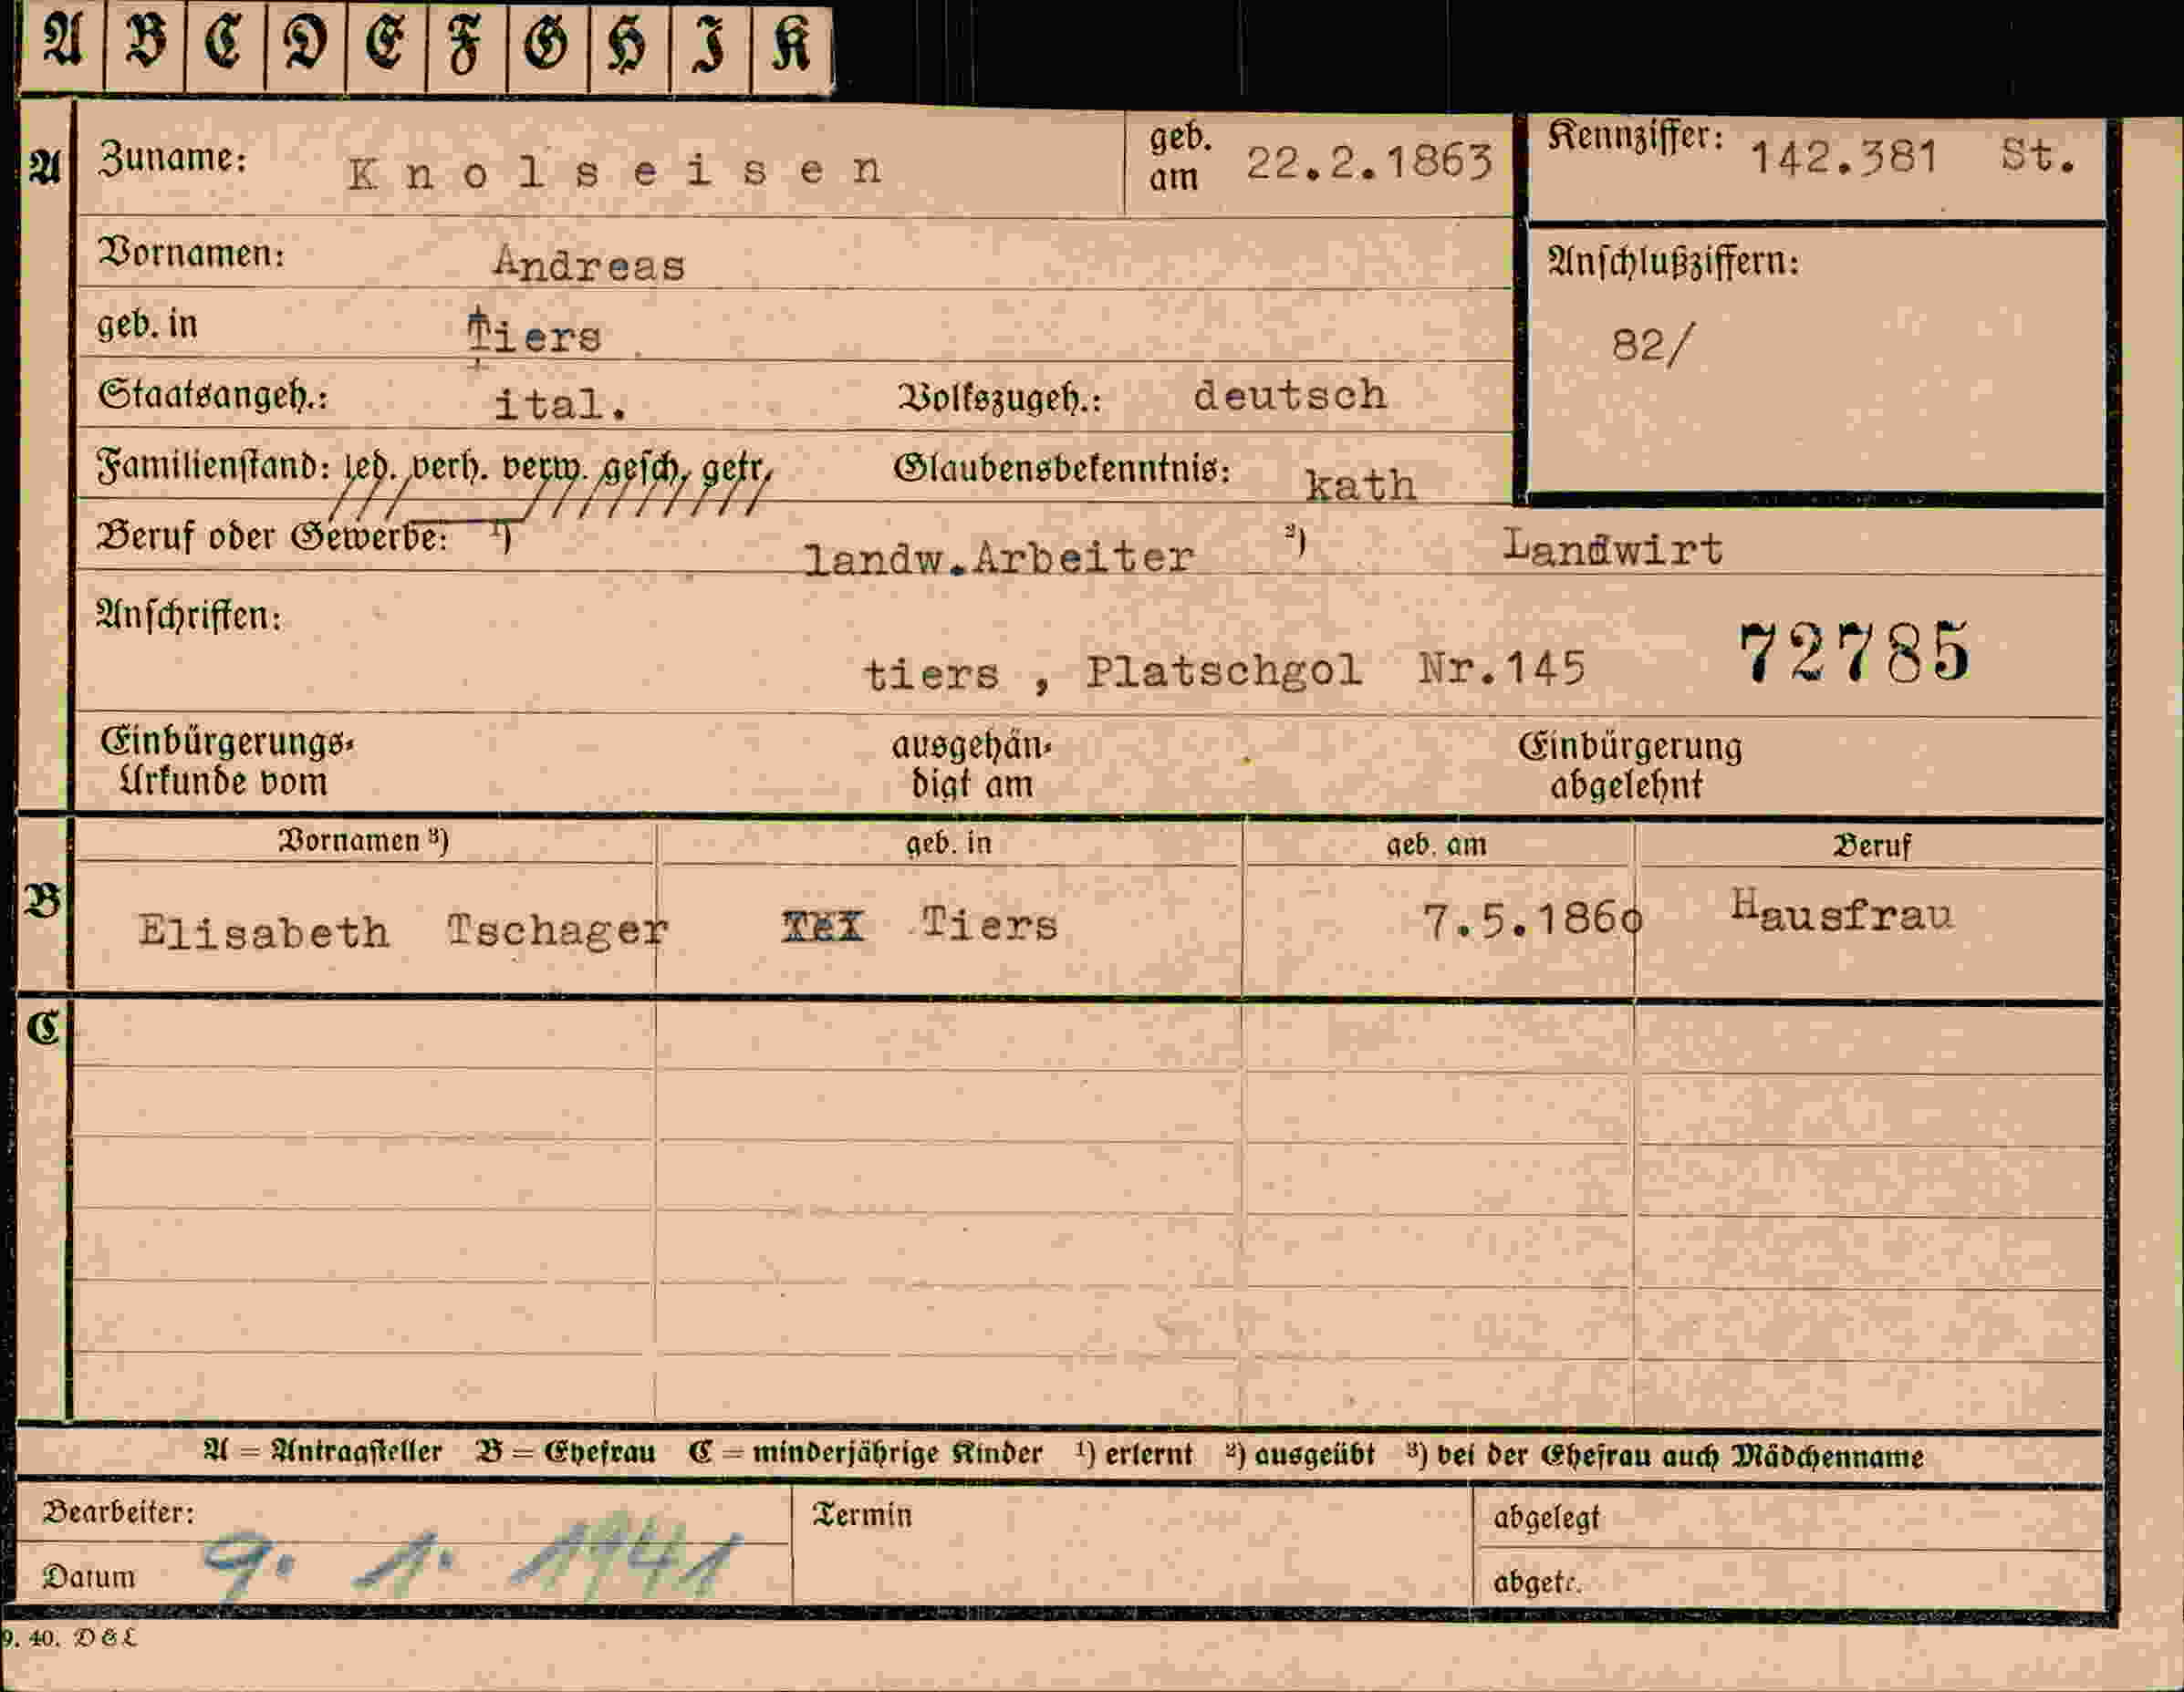 A B C D E F G H I K
A Zuname: Knolseisen geb. am 22.2.1863 Kennziffer: 142.381 St.
Vornamen: Andreas Anschlußziffern:
geb. in Tiers 82/
Staatsangeh.: ital. Volkszugeh.: deutsch
Familienstand: led. verh. verw. gesch. getr. Glaubensbekenntnis: kath
Beruf oder Gewerbe: ¹) landw.Arbeiter ²) Landwirt
Anschriften:
tiers , Platschgol Nr.145 72785
Einbürgerungs- Urkunde vom ausgehän- digt am Einbürgerung abgelehnt
Vornamen ³) geb. in geb. am Beruf
B Elisabeth Tschager Tiers 7.5.1860 Hausfrau
C
A = Antragsteller B = Ehefrau C = minderjährige Kinder ¹) erlernt ²) ausgeübt ³) bei der Ehefrau auch Mädchenname
Bearbeiter: Termin abgelegt
Datum 9. 1. 1941 abgetr.
9. 40. D&L